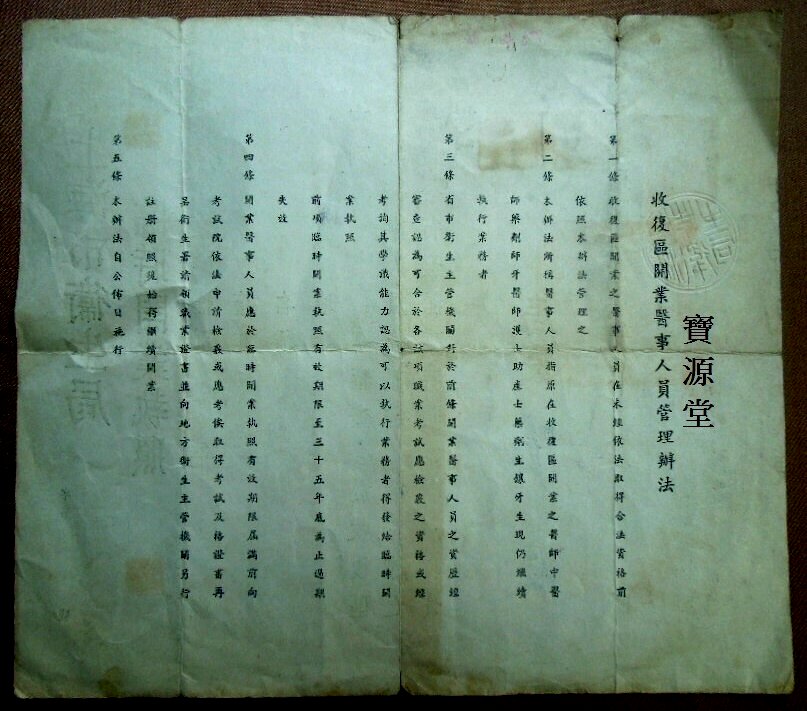 寶源堂
收復區開業醫事人員管理辦法
第一條 收復區開業之醫事人員在未經依法取得合法資格前
依照本辦法管理之
第二條 本辦法所稱醫事人員指原在收復區開業之醫師中醫
師藥劑師牙醫師護士助產士藥劑生鑲牙生現仍繼續
執行業務者
第三條 省市衛生主管機關對於前條開業醫事人員之資歷經
審查認為可合於各該項職業考試應檢覈之資格或經
考詢其學識能力認為可以執行業務者得發給臨時開
業執照
前項臨時開業執照有效期限至三十五年底為止過期
失效
第四條 開業醫事人員應於臨時開業執照有效期限屆滿前向
考試院依法申請檢覈或應考俟取得考試及格證書再
呈衛生署請領職業證書並向地方衛生主管機關另行
註册領照後始得繼續開業
第五條 本辦法自公佈日施行